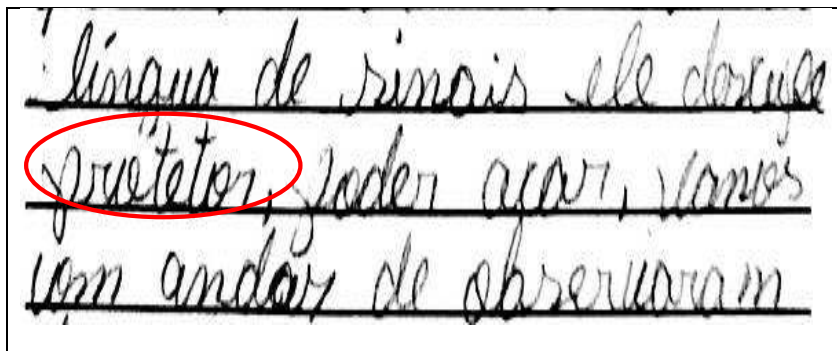 língua de sinais ele desculpe
priêtetor, poder açar, vamos
com andar de observaram